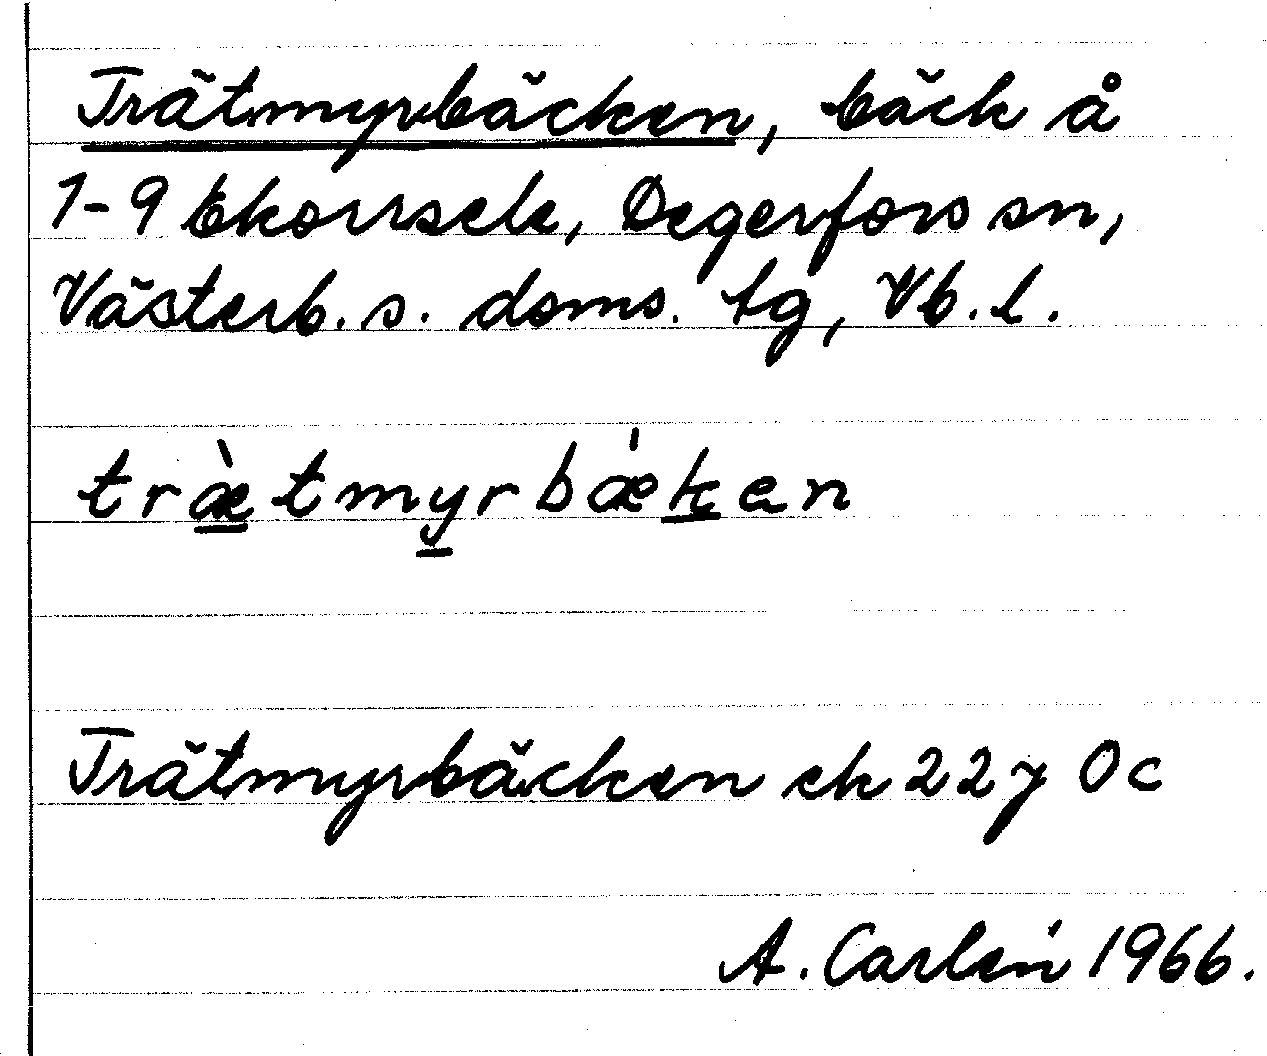 Trätmyrbäcken, bäck å
1-9 Ekorrsele, Degerfors sn,
Västerb. s. doms. tg, Vb. l.
træ̀tmyrbǽken
Trätmyrbäcken ek 22 y 0 c
A. Carlén 1966.